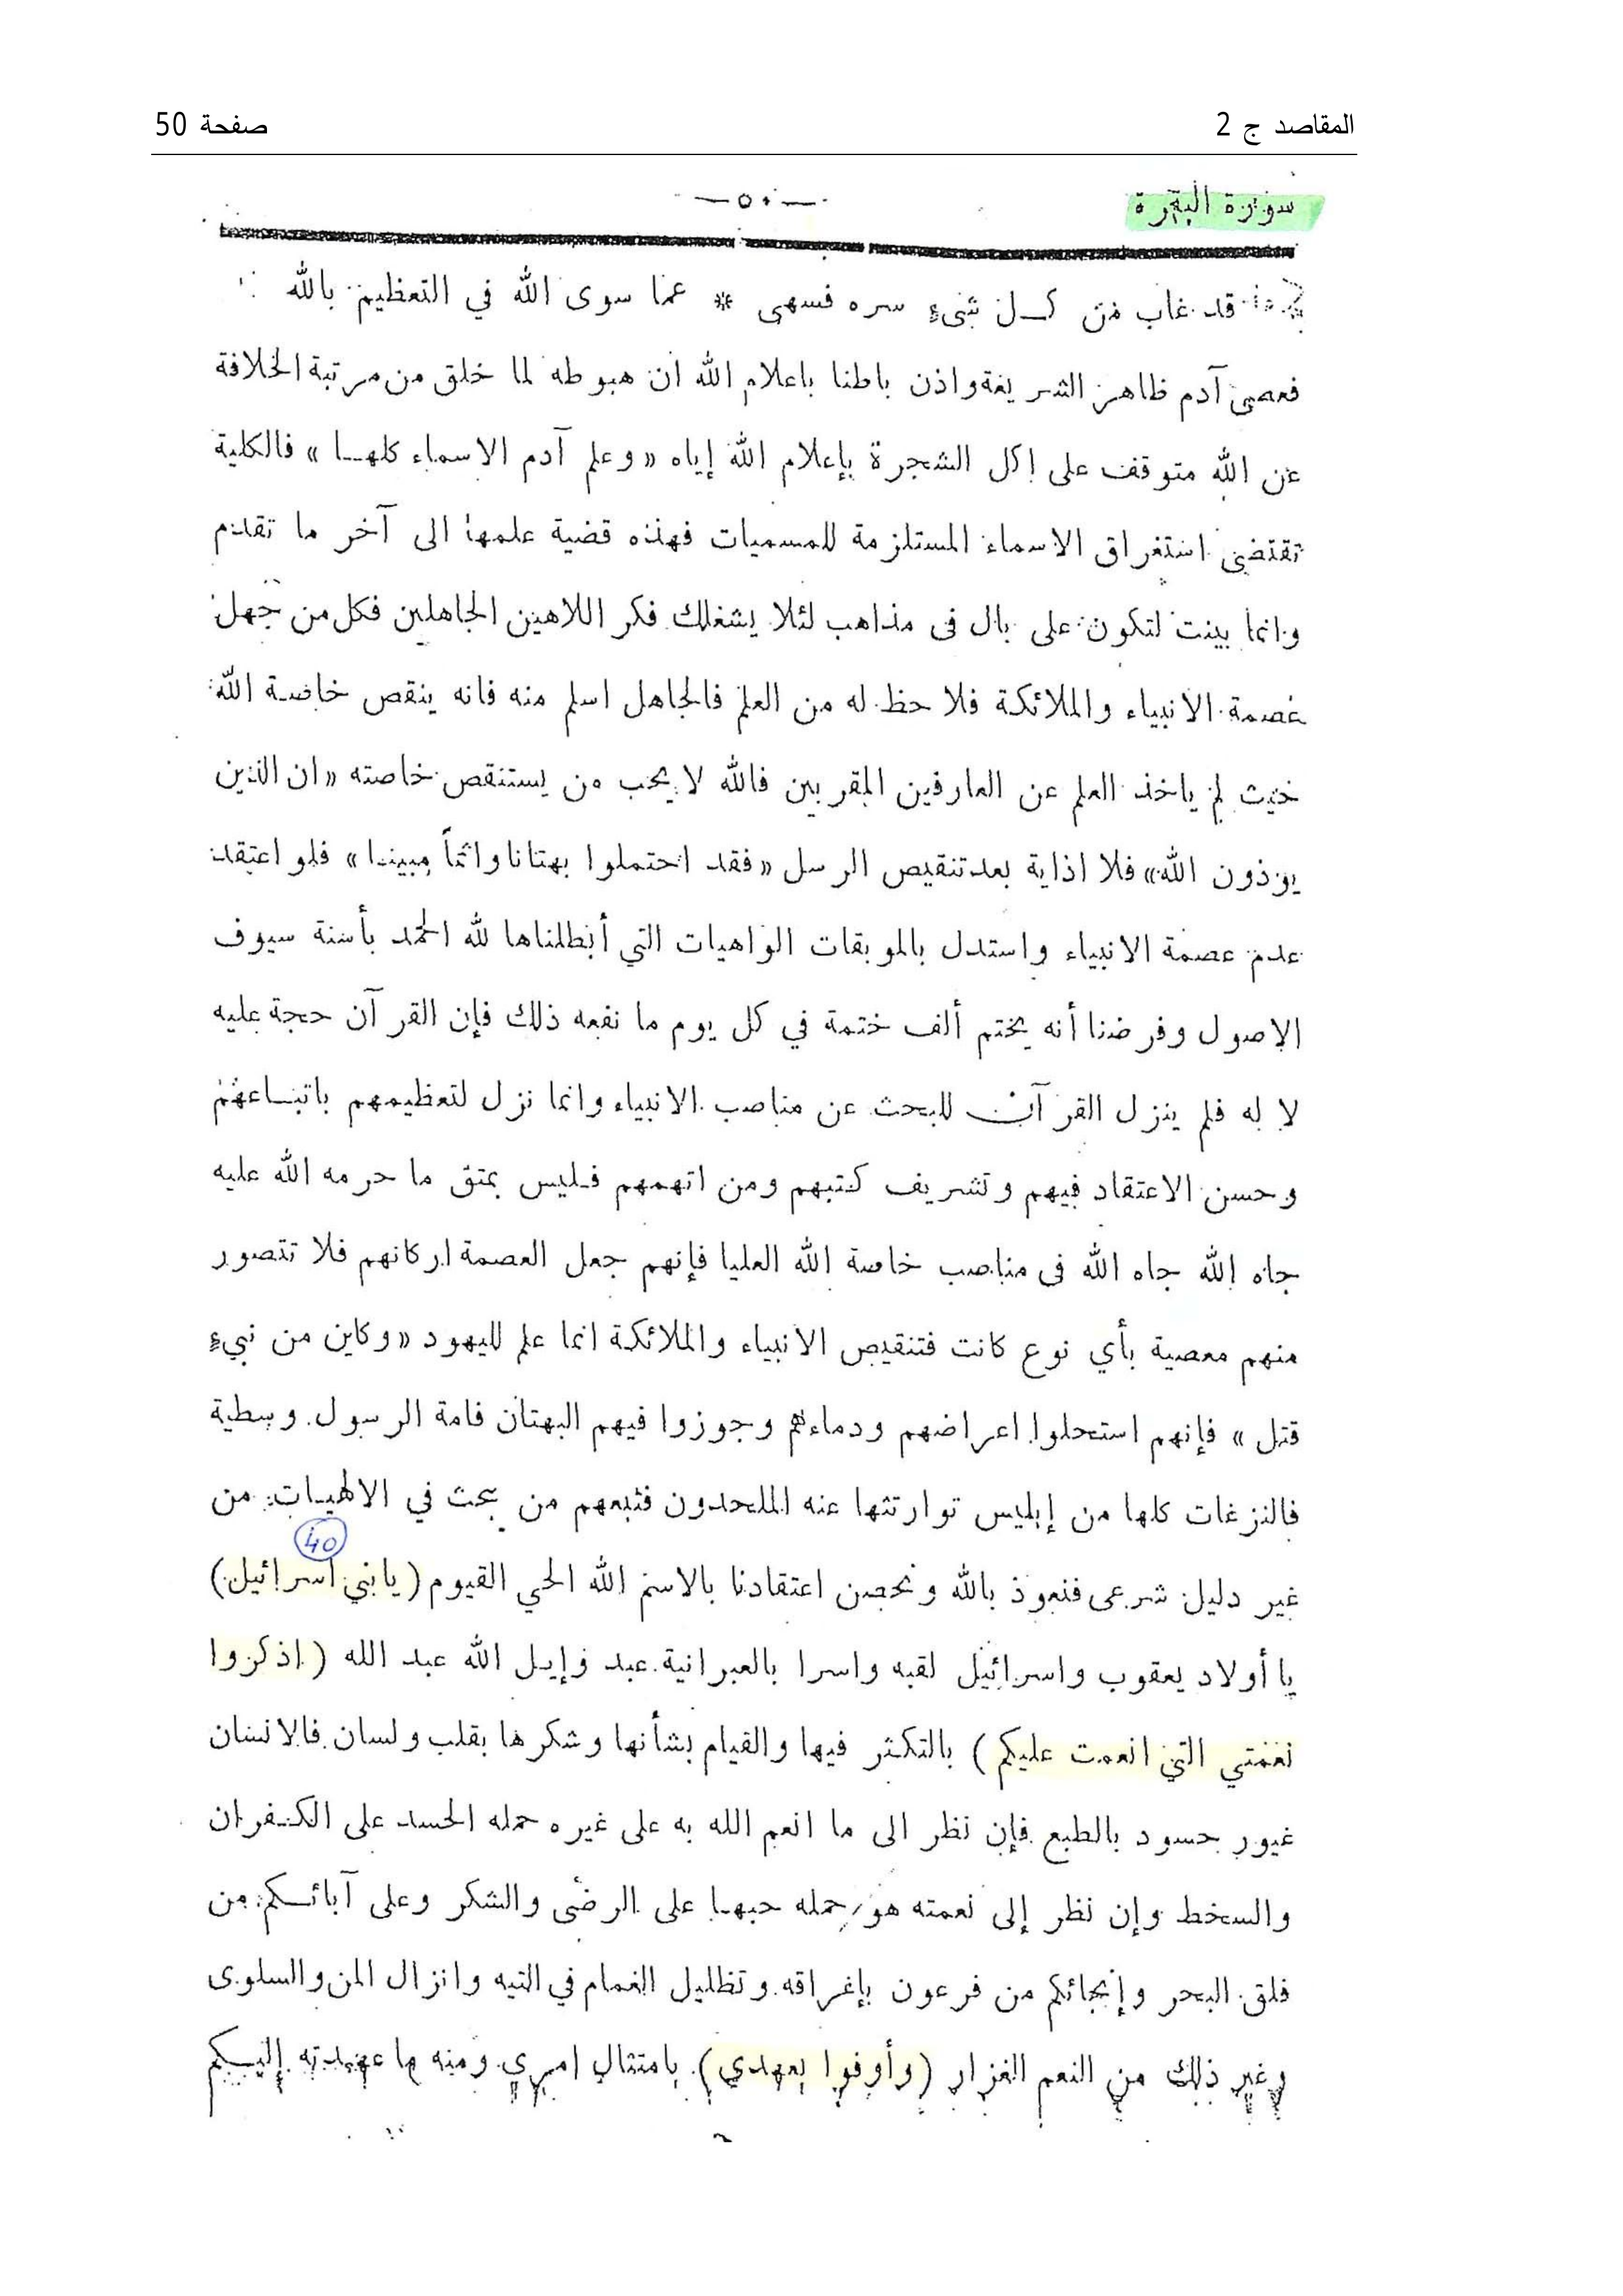 المقاصد ج 2
صفحة 50
سورة البقرة
— ٥٠ —
قد غاب من كـل شيء سره فسهى * عما سوى الله في التعظيم بالله
فعصى آدم ظاهر الشريعة واذن باطنا باعلام الله ان هبوطه لما خلق من مرتبة الخلافة
عن الله متوقف على اكل الشجرة بإعلام الله إياه « وعلم آدم الاسماء كلهـا » فالكلية
تقتضى استغراق الاسماء المستلزمة للمسميات فهذه قضية علمها الى آخر ما تقدم
وانما بينت لتكون على بال فى مذاهب لئلا يشغلك فكر اللاهين الجاهلين فكل من جهل
عصمة الانبياء والملائكة فلا حظ له من العلم فالجاهل اسلم منه فانه ينقص خاصة الله
حيث لم ياخذ العلم عن العارفين المقربين فالله لا يحب من يستنقص خاصته « ان الذين
يوذون الله » فلا اذاية بعد تنقيص الرسل « فقد احتملوا بهتانا واثماً مبينـا » فلو اعتقد
عدم عصمة الانبياء واستدل بالموبقات الواهيات التي أبطلناها لله الحمد بأسنة سيوف
الاصول وفرضنا أنه يختم ألف ختمة في كل يوم ما نفعه ذلك فإن القرآن حجة عليه
لا له فلم ينزل القرآن للبحث عن مناصب الانبياء وانما نزل لتعظيمهم باتبـاعهم
وحسن الاعتقاد فيهم وتشريف كتبهم ومن اتهمهم فـليس بمتق ما حرمه الله عليه
جاه الله جاه الله فى مناصب خاصة الله العليا فإنهم جعل العصمة اركانهم فلا تتصور
منهم معصية بأي نوع كانت فتنقيص الانبياء والملائكة انما علم لليهود « وكاين من نبيء
قتل » فإنهم استحلوا اعراضهم ودماءهم وجوزوا فيهم البهتان فامة الرسول وسطية
فالنزغات كلها من إبليس توارثتها عنه الملحدون فتبعهم من بحث في الالهيـات من
40
غير دليل شرعى فنعوذ بالله ونحصن اعتقادنا بالاسم الله الحي القيوم ( يا بني اسرائيل )
يا أولاد يعقوب واسرائيل لقبه واسرا بالعبرانية عبد وإيـل الله عبد الله ( اذكروا
نعمتي التي انعمت عليكم ) بالتكثر فيها والقيام بشأنها وشكرها بقلب ولسان فالانسان
غيور حسود بالطبع فإن نظر الى ما انعم الله به على غيره حمله الحسد على الكـفران
والسخط وإن نظر إلى نعمته هو حمله حبهـا على الرضى والشكر وعلى آبائـكم من
فلق البحر وإنجائكم من فرعون بإغراقه وتظليل الغمام في التيه وانزال المن والسلوى
وغير ذلك من النعم الغزار ( وأوفوا بعهدي ) بامتثال امري ومنه ما عهدته إليـكم